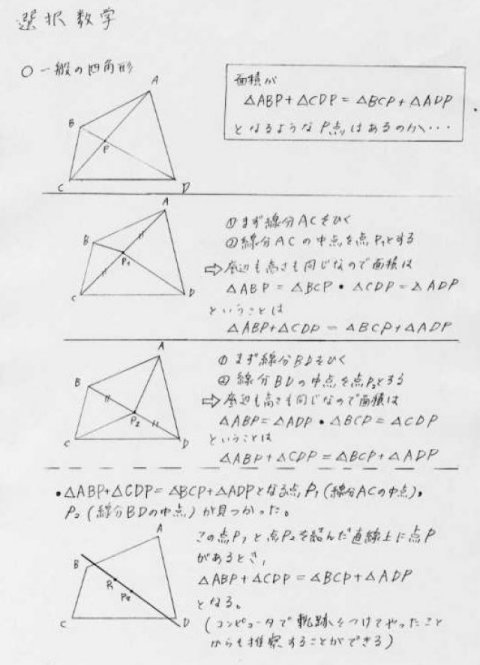 選択数学
○ 一般の四角形
A
B
P
C
D
面積が
△ABP+△CDP=△BCP+△ADP
となるようなP点はあるのか・・・
A
B
P₁
C
D
① まず線分ACをひく
② 線分ACの中点を点P₁とする
⇨ 底辺も高さも同じなので面積は
△ABP=△BCP・△CDP=△ADP
ということは
△ABP+△CDP=△BCP+△ADP
A
B
P₂
C
D
① まず線分BDをひく
② 線分BDの中点を点P₂とする
⇨ 底辺も高さも同じなので面積は
△ABP=△ADP・△BCP=△CDP
ということは
△ABP+△CDP=△BCP+△ADP
・△ABP+△CDP=△BCP+△ADPとなる点P₁(線分ACの中点)。
P₂(線分BDの中点)が見つかった。
A
B
P₁
P₂
C
D
この点P₁と点P₂を結んだ直線上に点P
があるとき,
△ABP+△CDP=△BCP+△ADP
となる。
(コンピュータで軌跡をつけてやったこと
からも推察することができる)